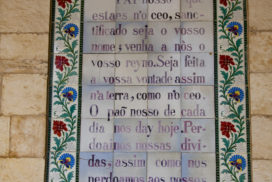 PAI nosso que
estaes n'o ceo, sanc-
tificado seja o vosso
nome; venha a nós o
vosso reyno. Seja feita
a vossa vontade assim
na terra, como n'o ceo.
O paõ nosso de cada
dia nos day hoje. Per-
doamos nossas divi-
das, assim como nos
perdoamos aos nossos